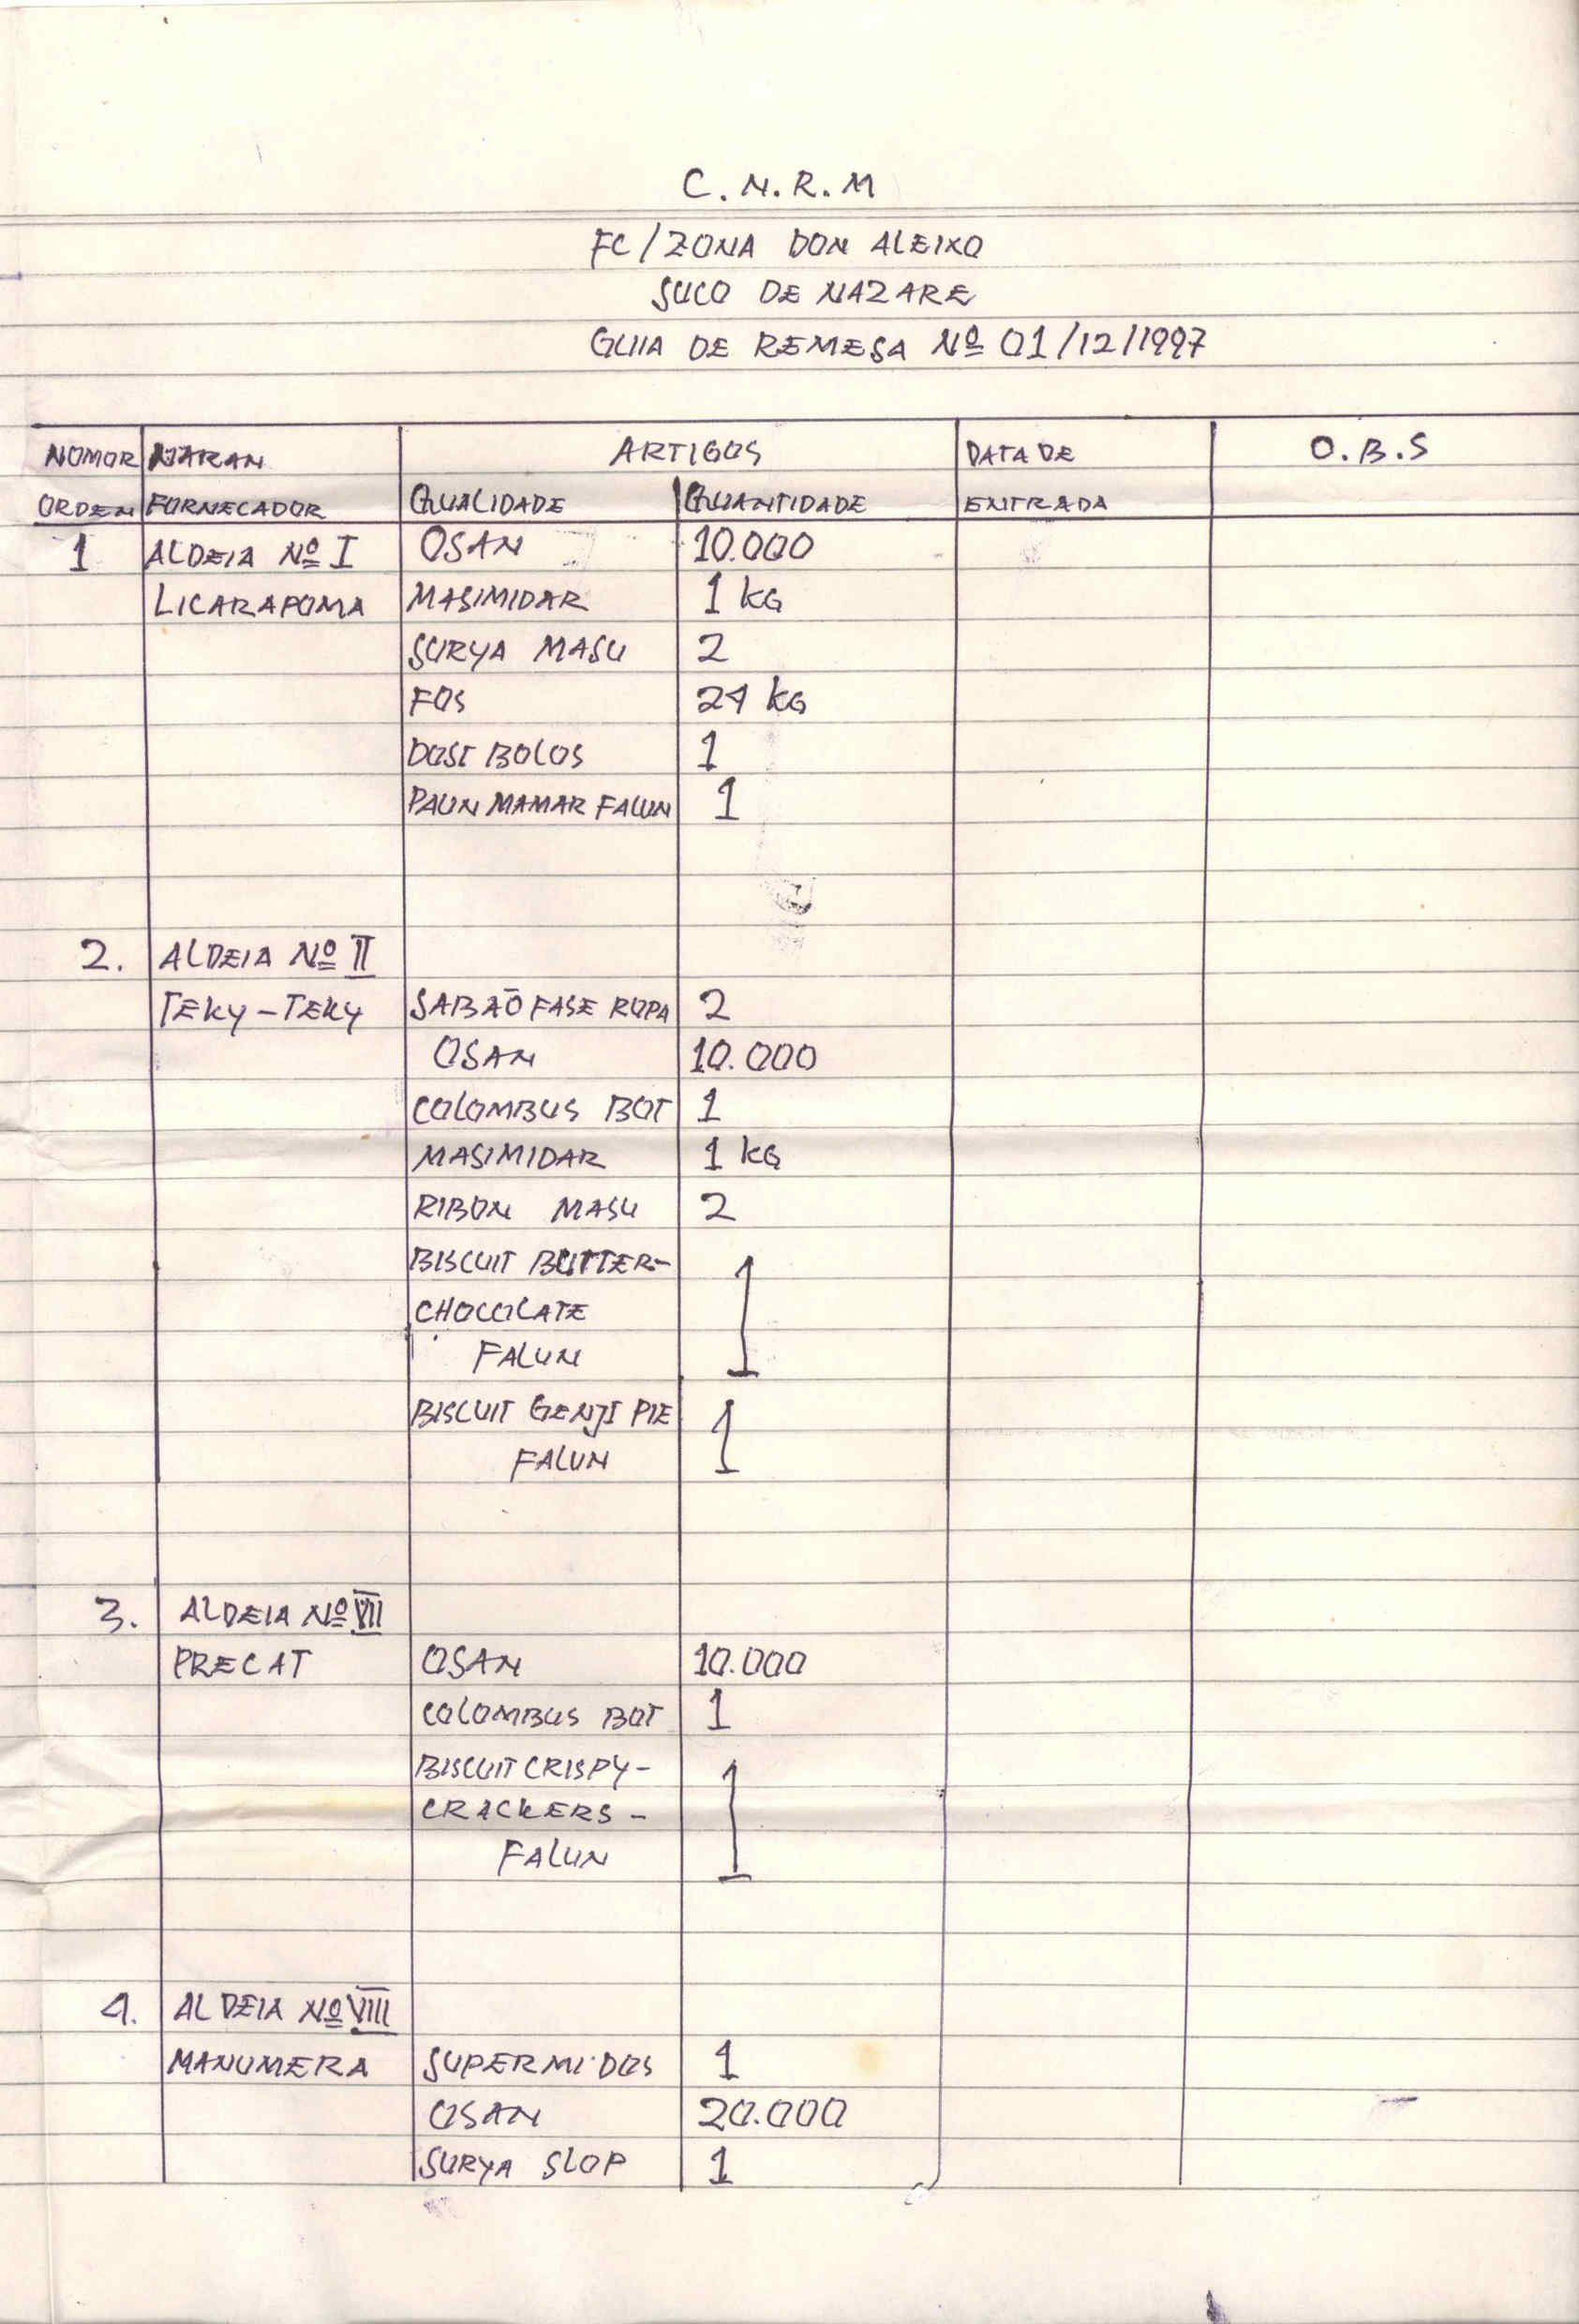 C.N.R.M
FC/ZONA DON ALEIXO
SUCO DE NAZARE
GUIA DE REMESA Nº 01/12/1997
NOMOR NARAN ARTIGOS DATA DE O.B.S
ORDEN FORNECADOR QUALIDADE QUANTIDADE ENTRADA
1 ALDEIA Nº I OSAN 10.000
LICARAPOMA MASIMIDAR 1 KG
SURYA MASU 2
FOS 24 KG
DOSI BOLOS 1
PAUN MAMAR FALUN 1
2. ALDEIA Nº II
TEKY-TEKY SABÃO FASE ROPA 2
OSAN 10.000
COLOMBUS BOT 1
MASIMIDAR 1 KG
RIBON MASU 2
BISCUIT BUTTER- 1
CHOCOLATE
FALUN
BISCUIT GENJI PIE 1
FALUN
3. ALDEIA Nº VII
PRECAT OSAN 10.000
COLOMBUS BOT 1
BISCUIT CRISPY- 1
CRACKERS-
FALUN
4. ALDEIA Nº VIII
MANUMERA SUPERMI DOS 1
OSAN 20.000
SURYA SLOP 1